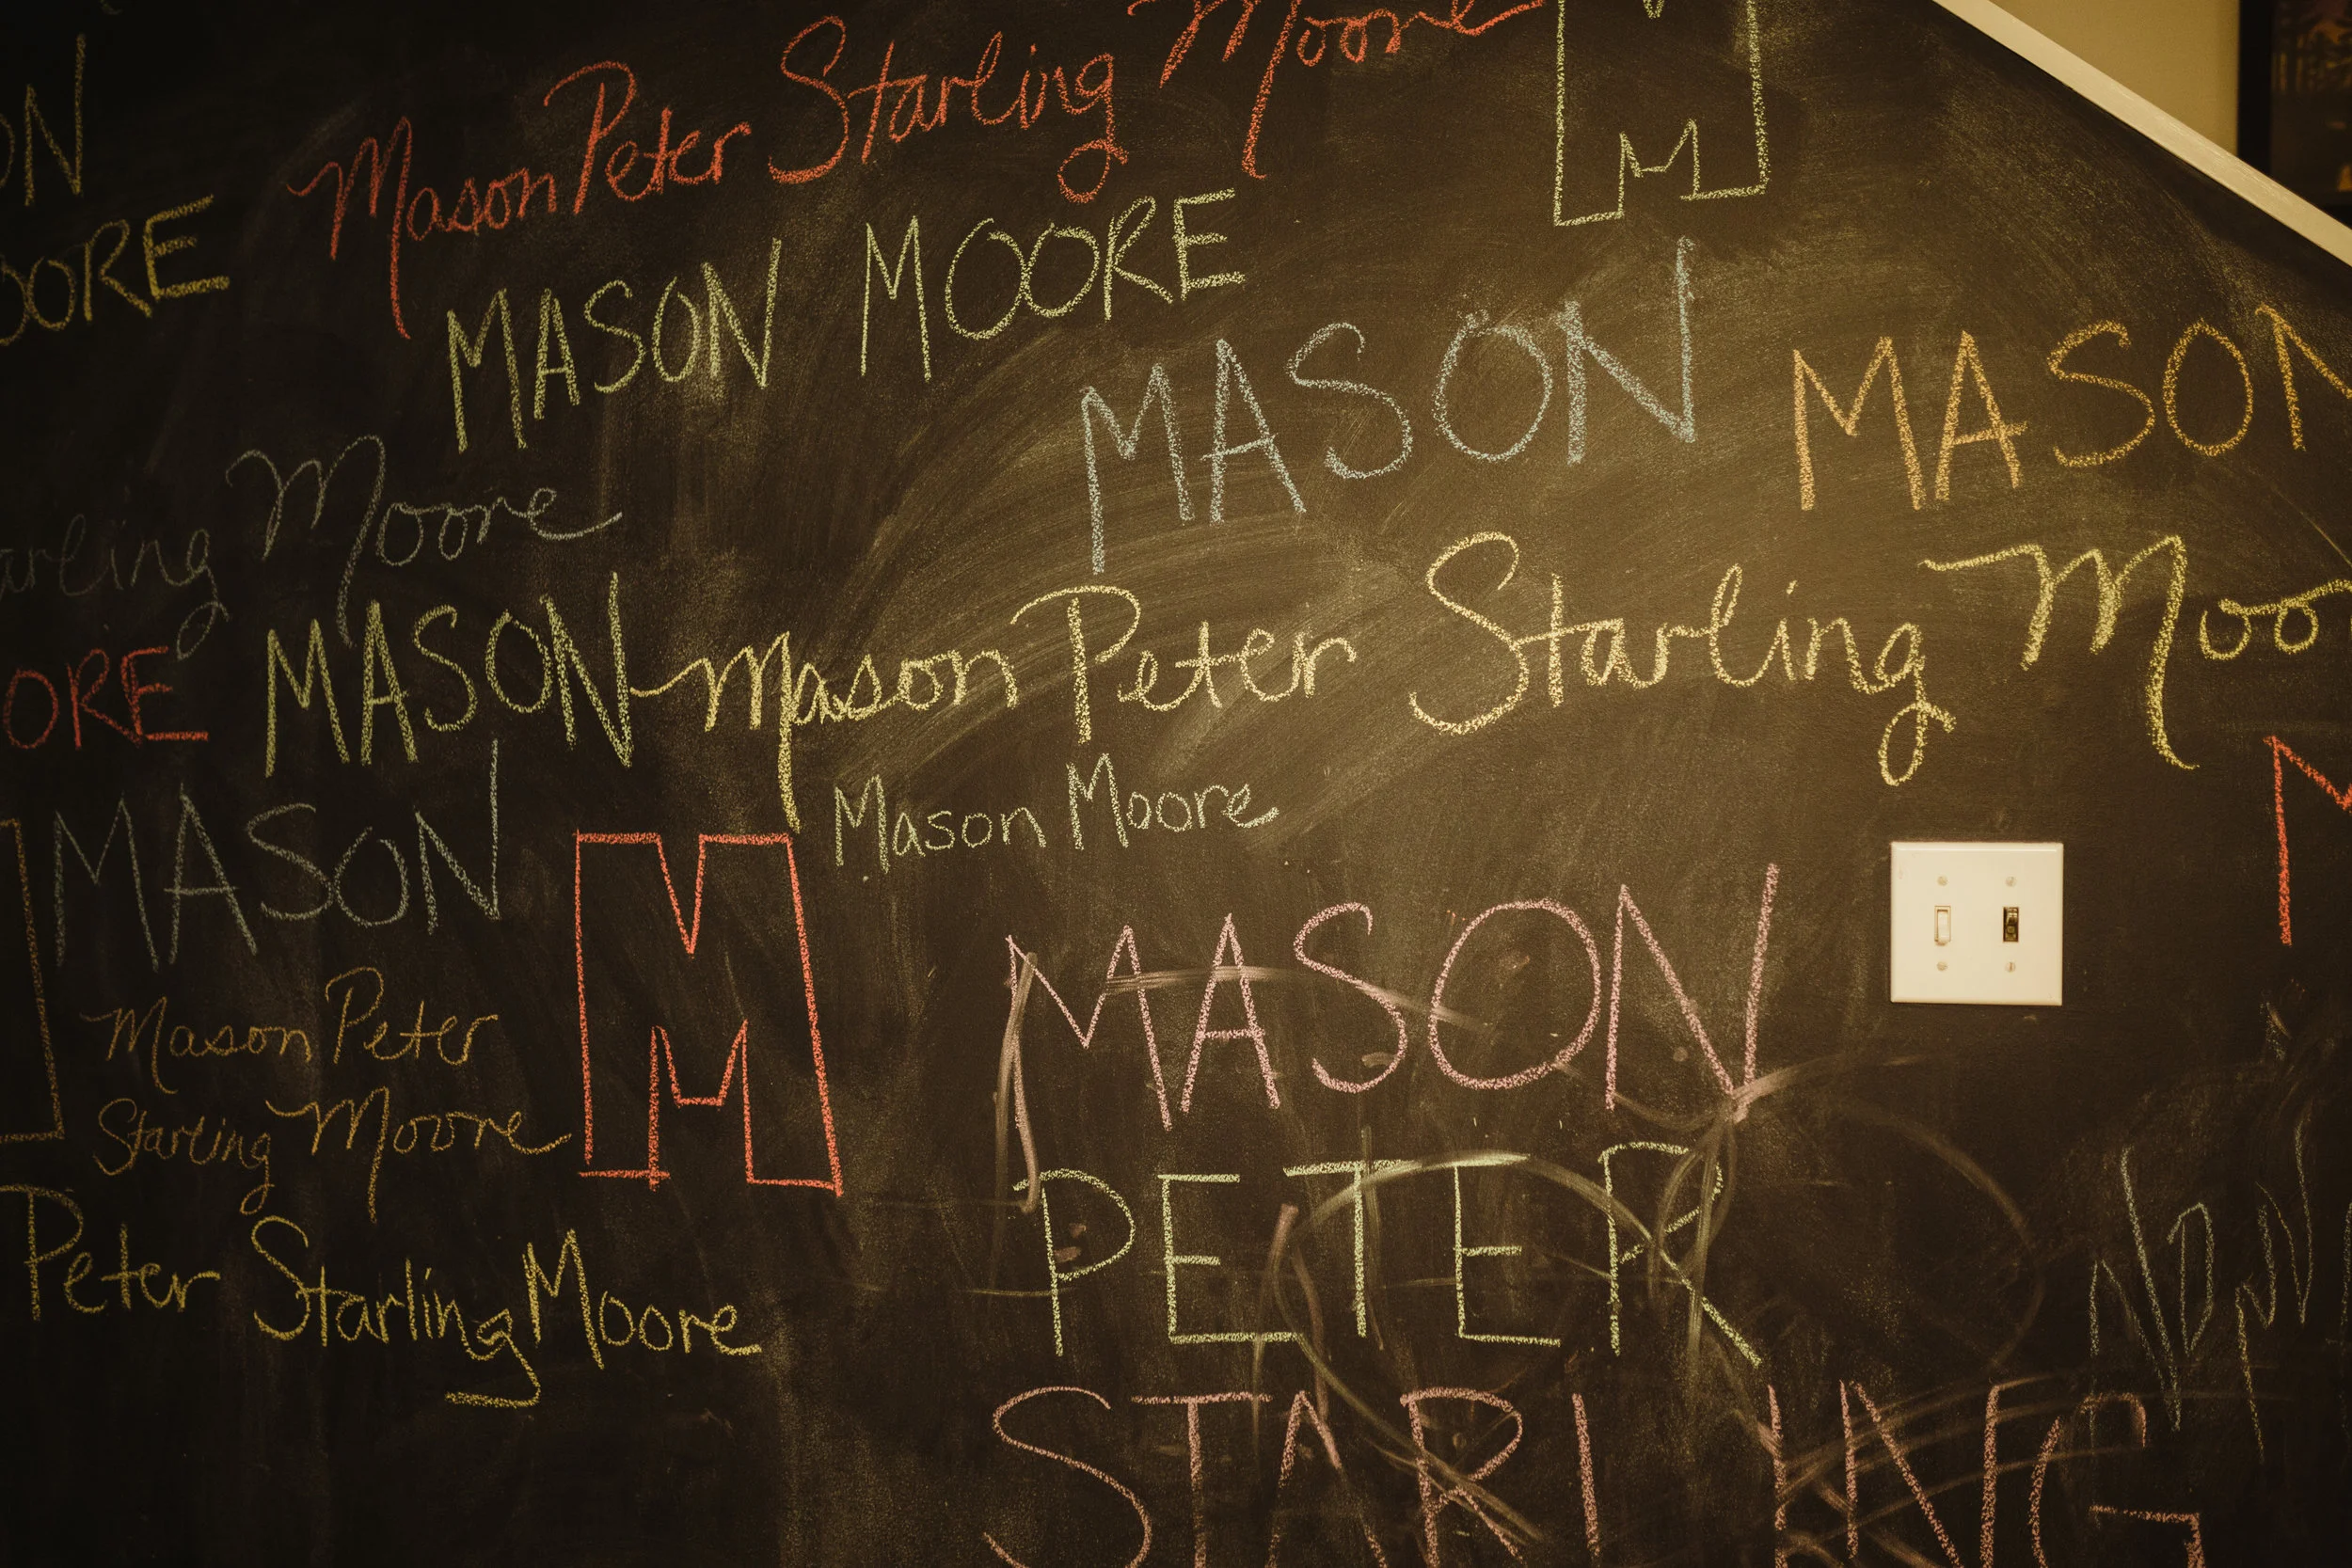 ON
OORE
Mason Peter Starling Moore
M
MASON MOORE
MASON
MASON
arling Moore
ORE
MASON
Mason Peter Starling Moo
Mason Moore
MASON
M
Mason Peter
Starling Moore
Peter Starling Moore
MASON
PETER
STARLING